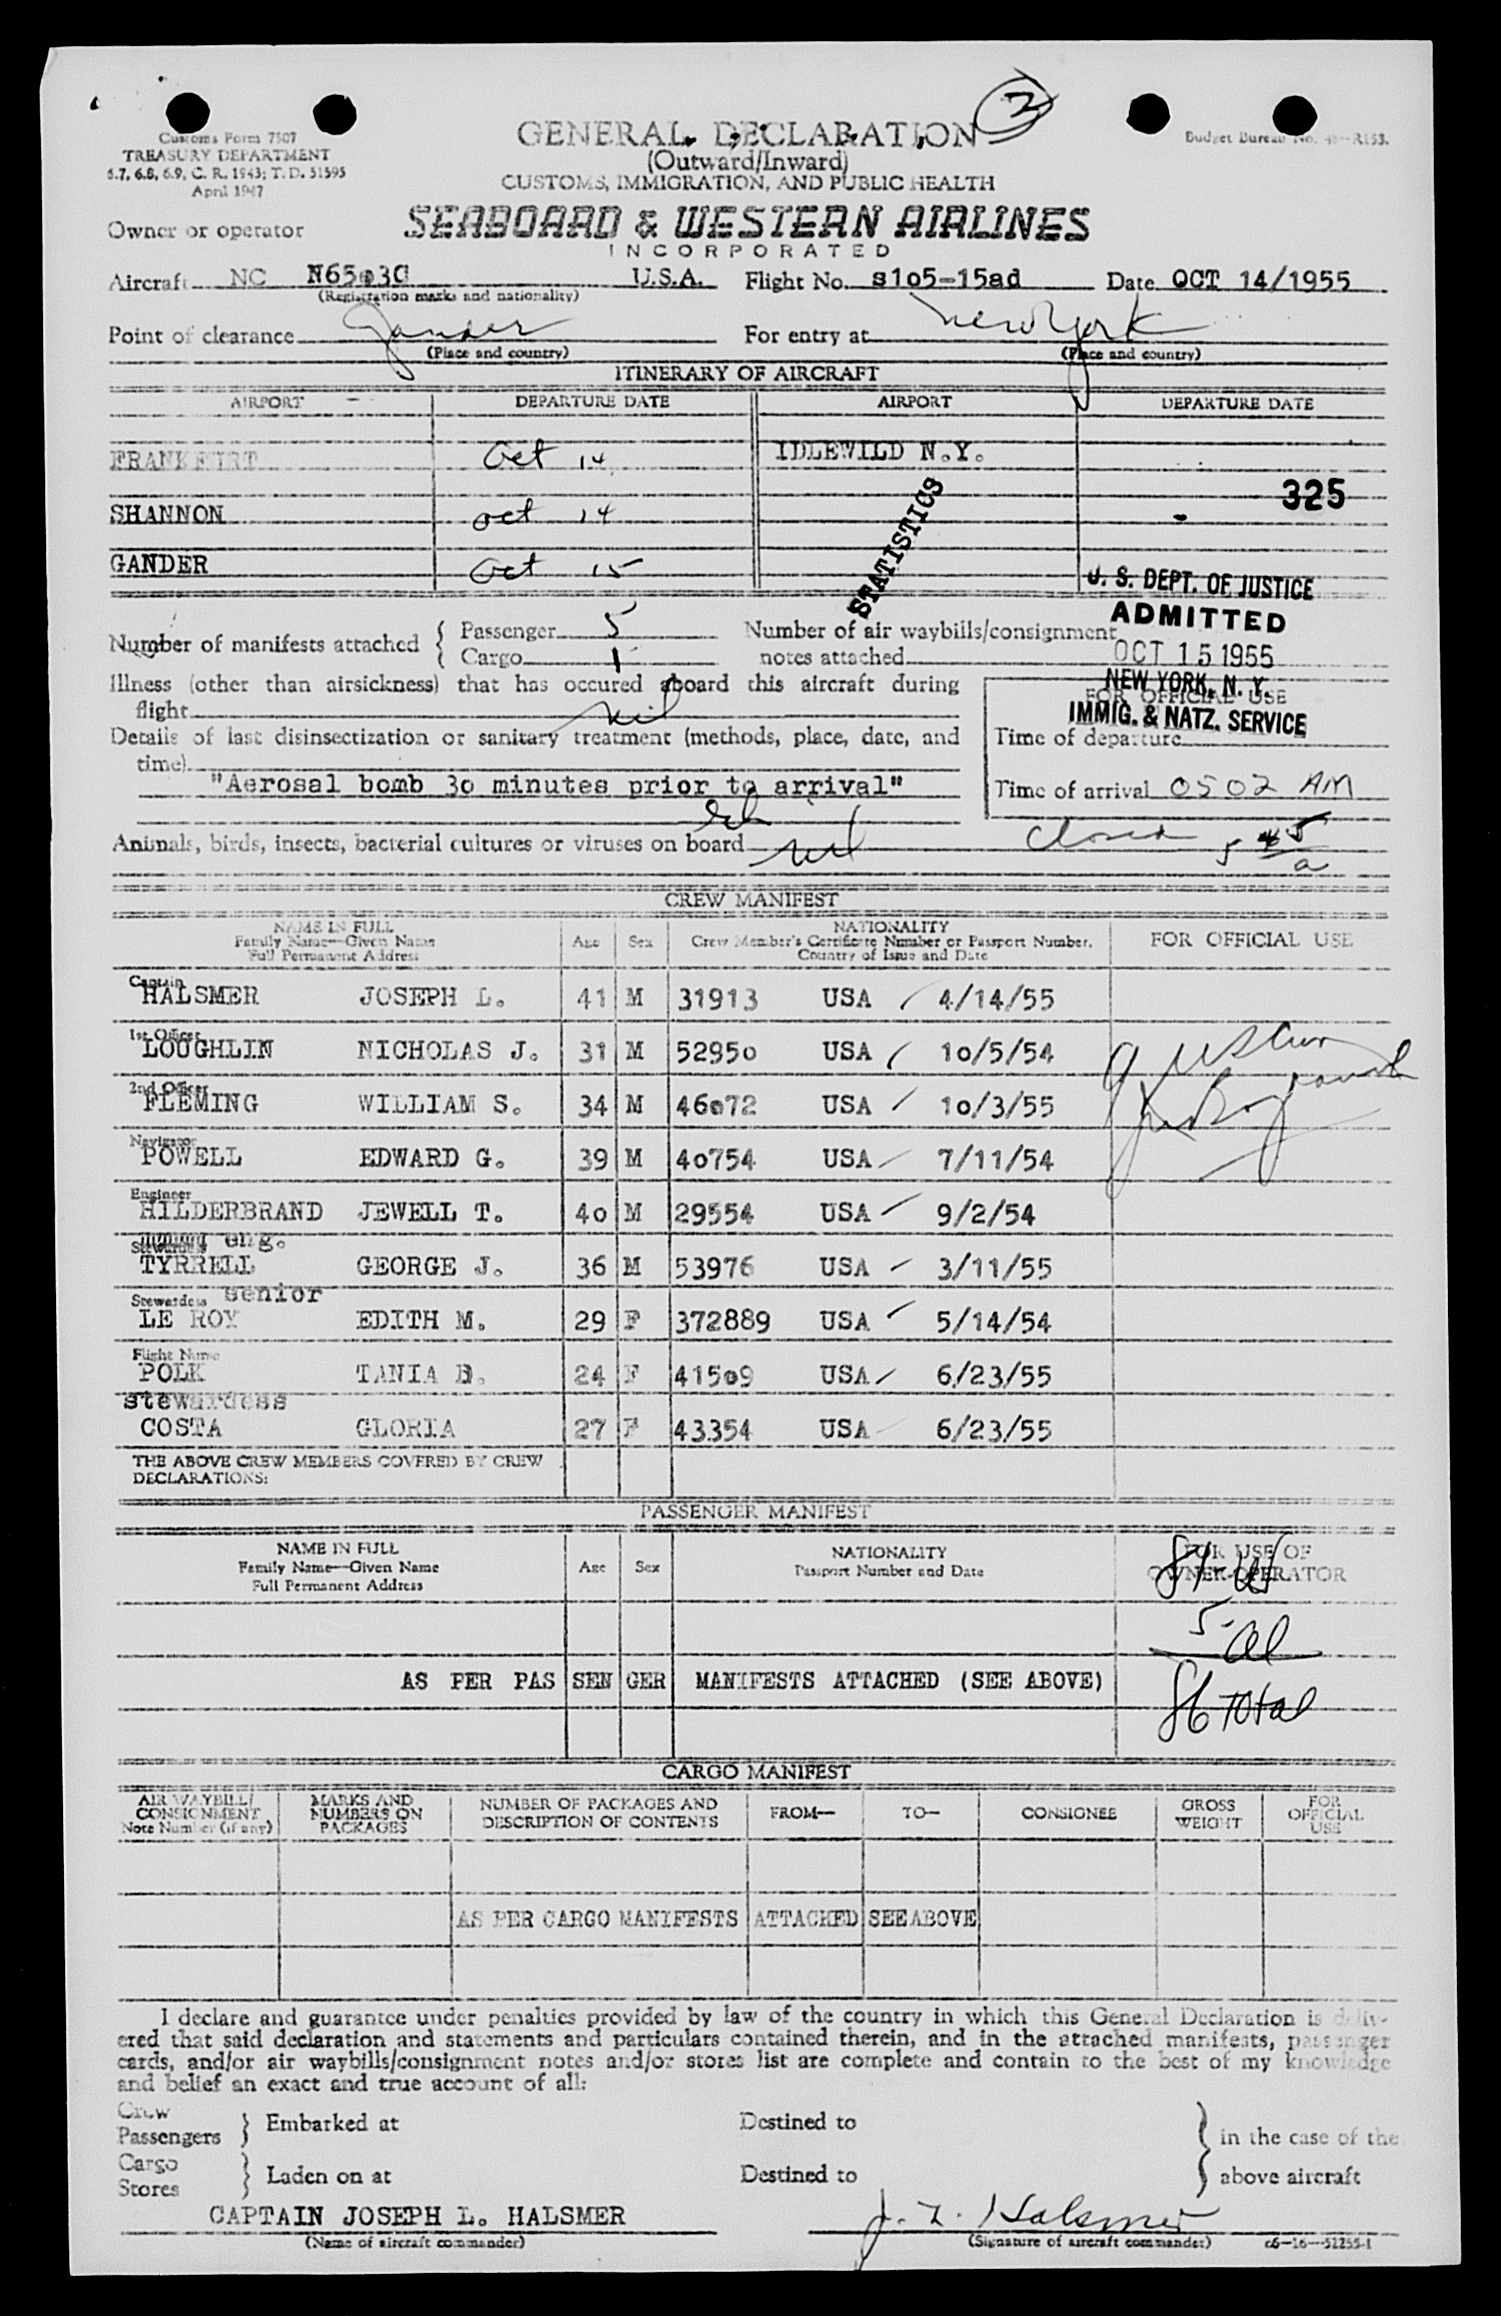 2
Customs Form 7507
TREASURY DEPARTMENT
6.7, 6.8, 6.9, C. R. 1943; T. D. 51595
April 1947
GENERAL DECLARATION
(Outward/Inward)
CUSTOMS, IMMIGRATION, AND PUBLIC HEALTH
Budget Bureau No. R153.
Owner or operator
SEABOARD & WESTERN AIRLINES
INCORPORATED
Aircraft NC N6503C U.S.A. Flight No. s1o5-15ad Date OCT 14/1955
(Registration marks and nationality)
Point of clearance Gander For entry at New York
(Place and country) (Place and country)
ITINERARY OF AIRCRAFT
AIRPORT DEPARTURE DATE AIRPORT DEPARTURE DATE
FRANKFURT Oct 14 IDLEWILD N.Y.
325
SHANNON oct 14
STATISTICS
GANDER Oct 15
U. S. DEPT. OF JUSTICE
ADMITTED
OCT 15 1955
NEW YORK, N. Y.
IMMIG. & NATZ. SERVICE
Number of manifests attached { Passenger 5 Number of air waybills/consignment
Cargo 1 notes attached
Illness (other than airsickness) that has occured aboard this aircraft during
flight nil
FOR OFFICIAL USE
Details of last disinsectization or sanitary treatment (methods, place, date, and
time)
Time of departure
"Aerosal bomb 3o minutes prior to arrival"
Time of arrival 0502 AM
Closed 5 45 a
Animals, birds, insects, bacterial cultures or viruses on board nil
CREW MANIFEST
NAME IN FULL
Family Name—Given Name
Full Permanent Address
Age Sex
NATIONALITY
Crew Member's Certificate Number or Passport Number,
Country of Issue and Date
FOR OFFICIAL USE
Captain
HALSMER JOSEPH L. 41 M 31913 USA / 4/14/55
1st Officer
LOUGHLIN NICHOLAS J. 31 M 5295o USA / 1o/5/54
2nd Officer
FLEMING WILLIAM S. 34 M 46o72 USA / 1o/3/55
Navigator
POWELL EDWARD G. 39 M 4o754 USA / 7/11/54
Engineer
HILDERBRAND JEWELL T. 4o M 29554 USA / 9/2/54
Stewardess eng.
TYRRELL GEORGE J. 36 M 53976 USA / 3/11/55
Stewardess senior
LE ROY EDITH M. 29 F 372889 USA / 5/14/54
Flight Nurse
POLK TANIA D. 24 F 415o9 USA / 6/23/55
stewardess
COSTA GLORIA 27 F 43354 USA / 6/23/55
THE ABOVE CREW MEMBERS COVERED BY CREW
DECLARATIONS:
PASSENGER MANIFEST
NAME IN FULL
Family Name—Given Name
Full Permanent Address
Age Sex
NATIONALITY
Passport Number and Date
FOR USE OF
OWNER-OPERATOR
81-
5-al
86 Total
AS PER PAS SEN GER MANIFESTS ATTACHED (SEE ABOVE)
CARGO MANIFEST
AIR WAYBILL/
CONSIGNMENT
Note Number (if any)
MARKS AND
NUMBERS ON
PACKAGES
NUMBER OF PACKAGES AND
DESCRIPTION OF CONTENTS
FROM— TO— CONSIGNEE
GROSS
WEIGHT
FOR
OFFICIAL
USE
AS PER CARGO MANIFESTS ATTACHED SEE ABOVE
I declare and guarantee under penalties provided by law of the country in which this General Declaration is deliv-
ered that said declaration and statements and particulars contained therein, and in the attached manifests, passenger
cards, and/or air waybills/consignment notes and/or stores list are complete and contain to the best of my knowledge
and belief an exact and true account of all:
Crew
Passengers } Embarked at Destined to } in the case of the
Cargo
Stores } Laden on at Destined to above aircraft
CAPTAIN JOSEPH L. HALSMER J. L. Halsmer
(Name of aircraft commander) (Signature of aircraft commander) c6-16-52255-1